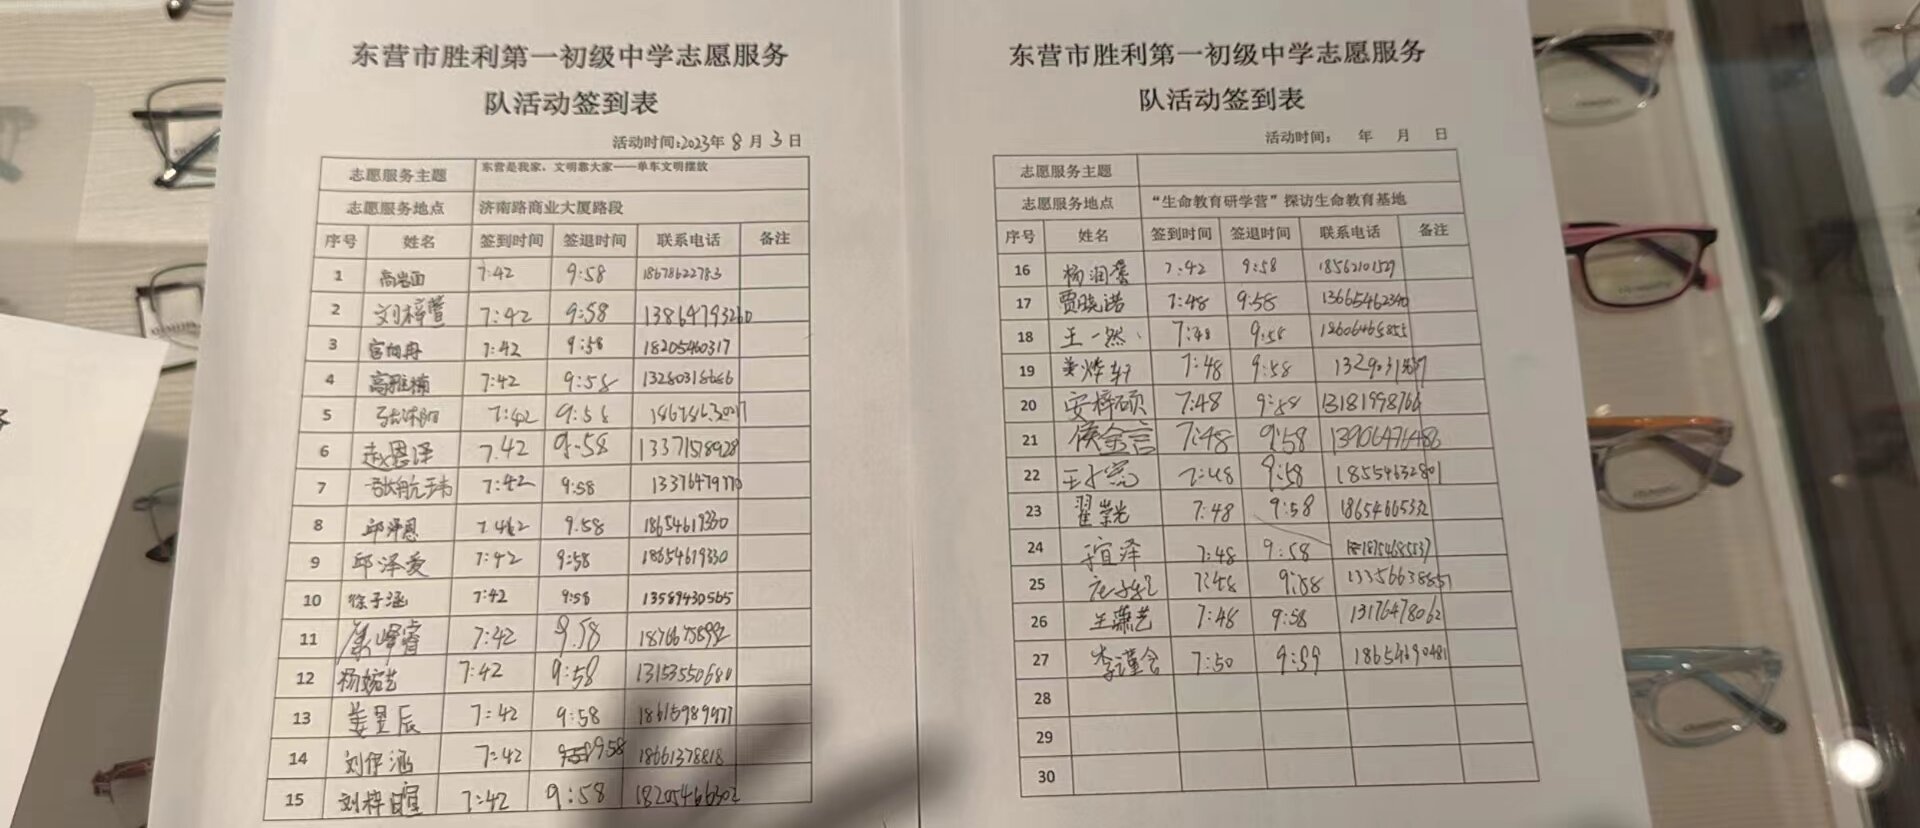 东营市胜利第一初级中学志愿服务
队活动签到表
活动时间:2023年 8 月 3 日
志愿服务主题 东营是我家，文明靠大家——单车文明摆放
志愿服务地点 济南路商业大厦路段
序号 姓名 签到时间 签退时间 联系电话 备注
1 7:42 9:58 18678622783
2 刘梓萱 7:42 9:58 13864793260
3 7:42 9:58 18205460317
4 高雅楠 7:42 9:58 13280318686
5 7:42 9:58
6 赵恩泽 7.42 9:58 13371578928
7 张航玮 7:42 9:58 13376479770
8 邱泽恩 7.42 9.58 18654619330
9 邱泽爱 7:42 9:58 18654619330
10 徐子涵 7:42 9:58 13589430565
11 7:42 9.58
12 杨婉艺 7:42 9:58 13153550680
13 姜昱辰 7:42 9:58 18615989977
14 刘伊涵 7:42 9:58 18661378818
15 刘梓萱 7:42 9:58 18205466302
东营市胜利第一初级中学志愿服务
队活动签到表
活动时间: 年 月 日
志愿服务主题
志愿服务地点 “生命教育研学营”探访生命教育基地
序号 姓名 签到时间 签退时间 联系电话 备注
16 杨润馨 7:42 9:58 18562101529
17 贾晓诺 7:48 9:58 13665462340
18 王一然 7:48 9:58 18606465855
19 7:48 9:58
20 安梓硕 7:48 9:58 13181998766
21 侯金言 7:48 9:58 13906471486
22 7:48 9:58 18554632801
23 翟崇光 7:48 9:58 18654665332
24 7:48 9:58 18754685537
25 7:48 9:58 13356638851
26 王潇艺 7:48 9:58 13176478062
27 李谨含 7:50 9:59 18654690481
28
29
30